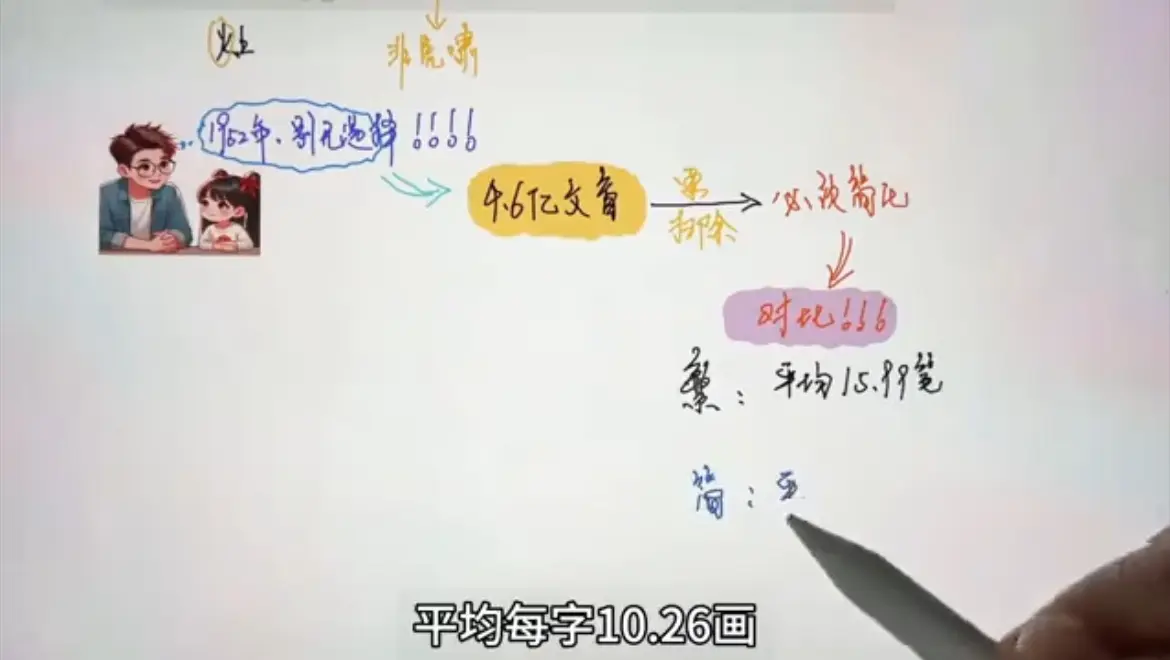 灶
1952年、别无选择!!!!
4.6亿文盲
要
扫除
必须简化
对比!!!
繁：平均15.99笔
简：平
平均每字10.26画